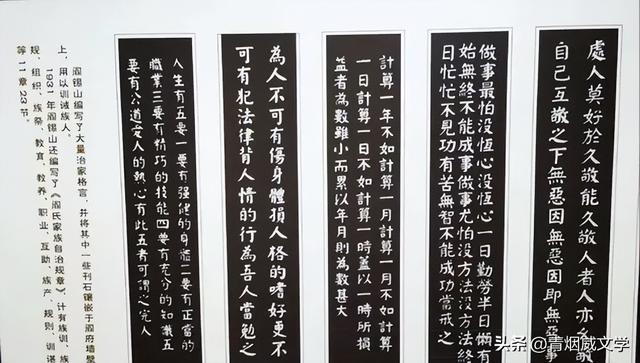 處人莫好於久敬能久敬人者人亦久敬
自己互敬之下無惡因無惡因即無惡事
做事最怕沒恆心沒恆心一日勤勞半日懶有
始無終不能成事做事尤怕沒方法沒方法終
日忙忙不見功有苦無智不能成功當戒之
計算一年不如計算一月計算一月不如計算
一日計算一日不如計算一時蓋以一時所損
益者為數雖小而累以年月則為數甚大
為人不可有傷身體損人格的嗜好更不
可有犯法律背人情的行為吾人當勉之
人生有五要一要有强健的身體二要有正當的
職業三要有精巧的技能四要有充分的知識五
要有公道愛人的熱心有此五者可謂之完人
阎锡山编写了大量治家格言，并将其中一些刊石镶嵌于阎府墙壁
上，用以训诫族人。
1931年阎锡山还编写了《阎氏家族自治规章》，计有族训、族
规、组织、族祭、教育、教养、职业、互助、族产、规则、训谌
等11章23节。
头条@青烟威文学